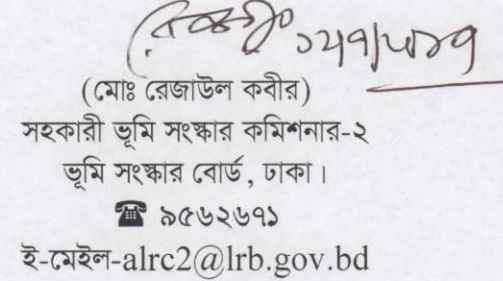 (মোঃ রেজাউল কবীর)
সহকারী ভূমি সংস্কার কমিশনার-২
ভূমি সংস্কার বোর্ড, ঢাকা।
☎ ৯৫৬২৬৭১
ই-মেইল-alrc2@lrb.gov.bd